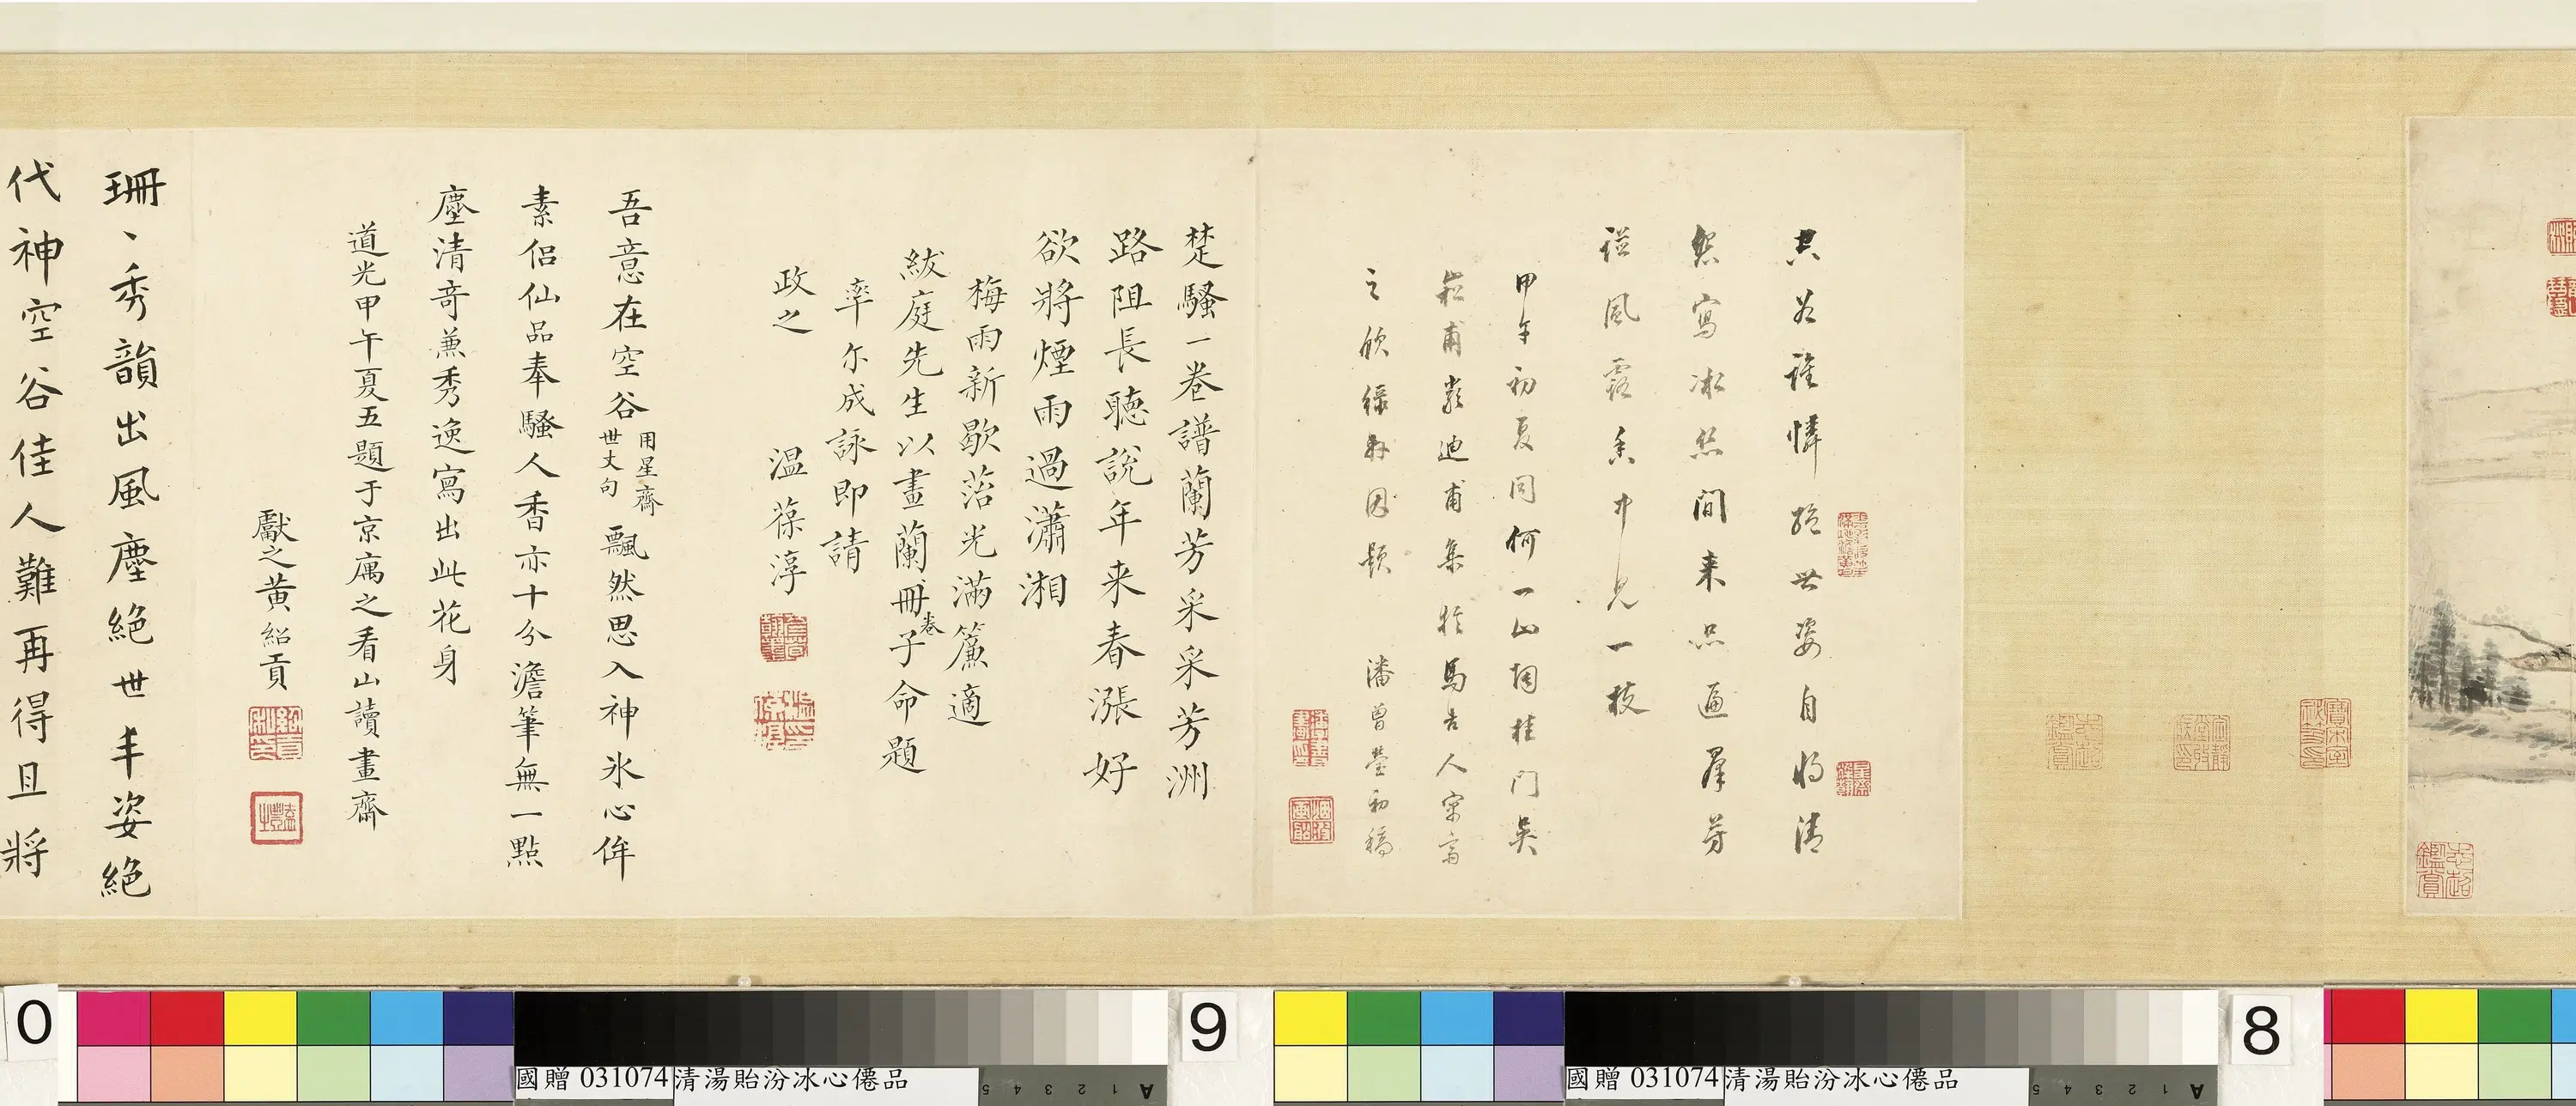 共君誰憐絕世姿自將清
怨寫冰絲間來品遍羣芳
譜風露香中見一枝
甲午初夏同何一山桐桂門吳
崧甫嚴迪甫集
之欣緣軒因題 潘曾瑩初稿
楚騷一卷譜蘭芳采采芳洲
路阻長聽說年來春漲好
欲將煙雨過瀟湘
梅雨新歇菭光滿簾適
紱庭先生以畫蘭冊卷子命題
率尓成詠即請
政之 温葆淳
吾意在空谷用星齋世丈句飄然思入神氷心侔
素侶仙品奉騷人香亦十分澹筆無一點
塵清奇兼秀逸寫出此花身
道光甲午夏五題于京庽之看山讀畫齋
獻之黃紹貢
珊、秀韻出風塵絕世丰姿絕
代神空谷佳人難再得且將
0
9
8
國贈 031074 清湯貽汾冰心僊品
5 4 3 2 1 A
國贈 031074 清湯貽汾冰心僊品
5 4 3 2 1 A